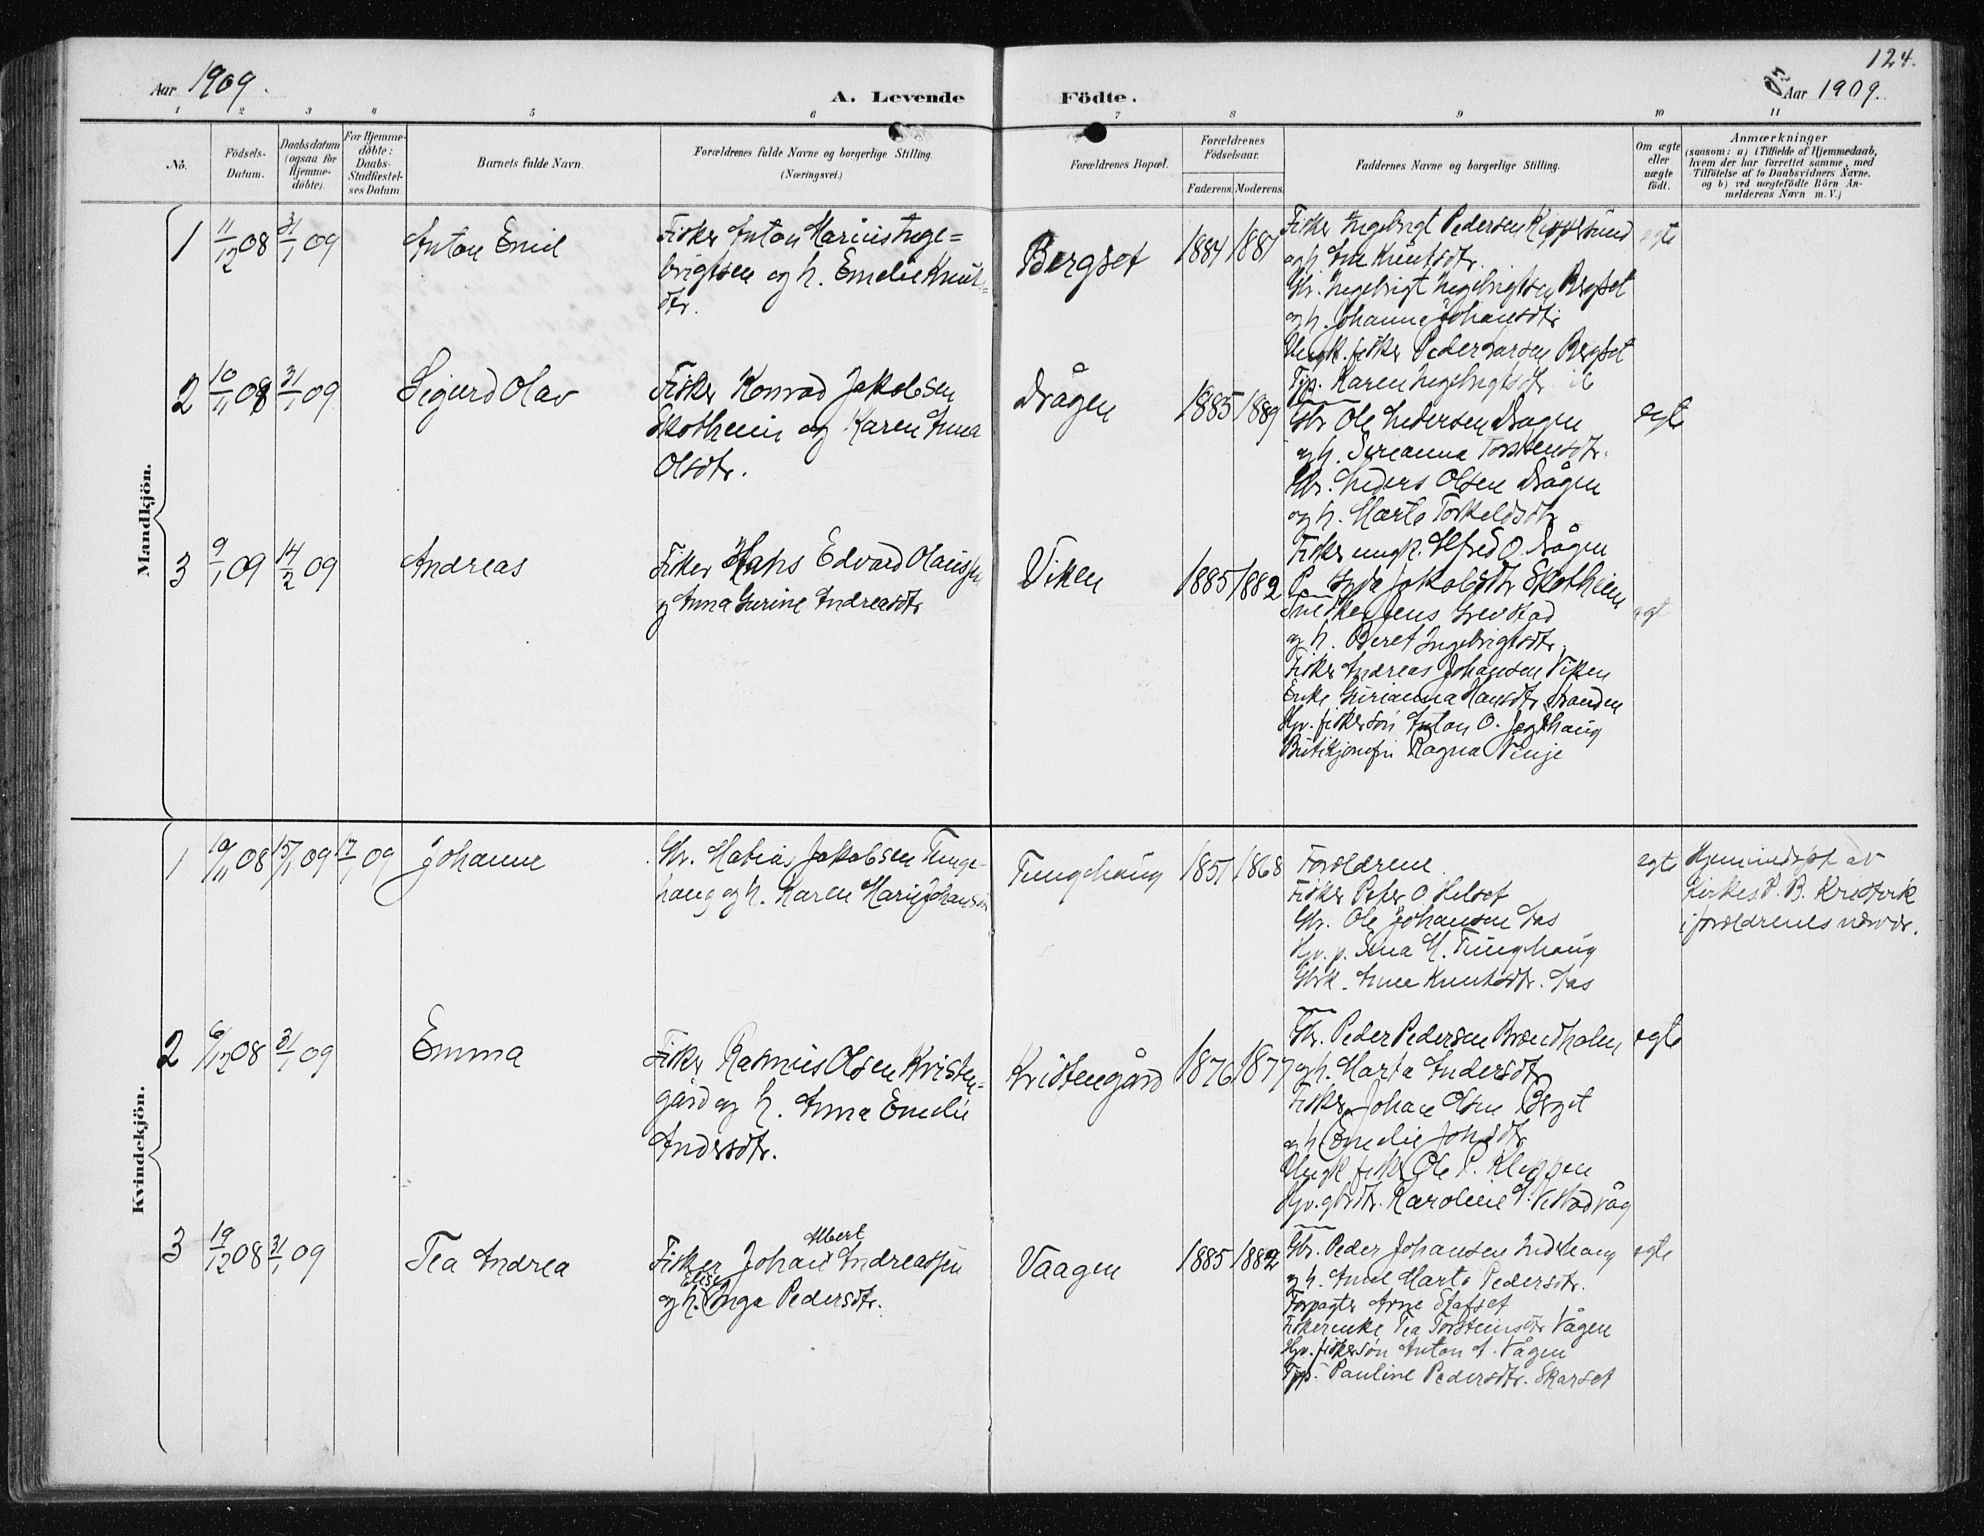 124.
Aar 1909.
A. Levende Födte.
Aar 1909.
1 2 3 4 5 6 7 8 9 10 11
No.
Födsels-
Datum.
Daabsdatum
(ogsaa for
Hjemme-
döbte).
For Hjemme-
döbte:
Daabs-
Stadfæstel-
ses Datum.
Barnets fulde Navn.
Forældrenes fulde Navne og borgerlige Stilling.
(Næringsvei.)
Forældrenes Bopæl.
Forældrenes
Födselsaar.
Faderens. Moderens.
Faddernes Navne og borgerlige Stilling.
Om ægte
eller
uægte
födt.
Anmærkninger
(saasom: a) i Tilfælde af Hjemmedaab,
hvem der har forrettet samme, med
Tilföielse af to Daabsvidners Navne,
og b) ved uægtefödte Börn An-
melderens Navn m. V.)
Mandkjön.
1 11/12 08 31/1 09
Anton Emil
Fisker Anton Marius Inge=
brigtsen og h. Emelie Knuts-
dtr.
Bergset
1884 1887
Fisker Ingebrigt Pedersen
og h. Knutsdtr.
Gbr. Ingebrigt Ingebrigtsen Bergset
og h. Johanne Johansdtr
Ungk. fisker Peder Larsen Bergset
Karen Ingebrigtsdtr
egte
2 10/11 08 31/1 09
Sigurd Olav
Fisker Konrad Jakobsen
Skotheim og Karen Anna
Olsdtr.
Drågen
1885 1889
Gbr Ole Andersen Dragen
og h. Torstensdtr.
Gbr. Anders Olsen Drågen
og h. Marta Torkeldsdtr
Fisker ungk. Alfred O. Drågen
P. Jakobsdtr Skotheim
egte
3 9/1 09 14/2 09
Andreas
Fisker Hans Edvard Olaussen
og Anna Gurine Andreasdtr
Viken
1885 1882
Snedker Jens Grevstad
og h. Beret Ingebrigtsdtr.
Fisker Andreas Johansen Viken
Enke Gurianna Hansdtr. Stranden
Hjv. fiskersøn Anton O. Jegthaug
Butikjomfru Ragna Vinje
egt
Kvindekjön.
1 10/11 08 15/1 09 17/1 09
Johanne
Gbr. Matias Jakobsen Tunge-
haug og h. Karen Marie Johansdtr
Tungehaug
1851 1868
Forældrene.
Fisker Peter O. Helset
Gbr. Ole Johansen Aas
Hjv. p. M. Tungehaug
Gbrk. Anne Knutsdtr. Aas
egte
Hjemmedøpt av
Kirkes. P. B. Kristvik
i forældrenes nærvær.
2 6/12 08 31/1 09
Emma
Fisker Rasmus Olsen Kristen-
gård og h. Anna Emelie
Andersdtr.
Kristengård
1876 1877
Gbr. Peder Pedersen Brændholm
og h. Marta Andersdtr
Fisker Johan Olsen Berget
og h. Emelie Johsdtr
Ungk. fisker Ole P. Kleppen
Hjv. gbrdtr. Karoline
egte
3 19/12 08 31/1 09
Tea Andrea
Albert
Fisker Johan Andreassen
Elise
og h. Inga Pedersdtr.
Vaagen
1885 1882
Gbr. Peder Johansen Inderhaug
og h. Anne Marta Pedersdtr.
Forpagter Arne Stafset
Fiskerenke Tea Torsteinsdtr Vågen
Hjv. fiskersøn Anton A. Vågen
Pauline Pedersdtr. Skarset
egte